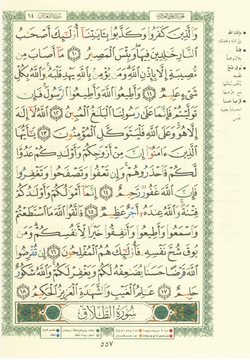 وَالَّذِينَ كَفَرُوا وَكَذَّبُوا بِآيَاتِنَا أُولَٰئِكَ أَصْحَابُ
النَّارِ خَالِدِينَ فِيهَا وَبِئْسَ الْمَصِيرُ ١٠ مَا أَصَابَ مِنْ
مُصِيبَةٍ إِلَّا بِإِذْنِ اللَّهِ وَمَنْ يُؤْمِنْ بِاللَّهِ يَهْدِ قَلْبَهُ وَاللَّهُ بِكُلِّ
شَيْءٍ عَلِيمٌ ١١ وَأَطِيعُوا اللَّهَ وَأَطِيعُوا الرَّسُولَ فَإِنْ
تَوَلَّيْتُمْ فَإِنَّمَا عَلَىٰ رَسُولِنَا الْبَلَاغُ الْمُبِينُ ١٢ اللَّهُ لَا إِلَٰهَ
إِلَّا هُوَ وَعَلَى اللَّهِ فَلْيَتَوَكَّلِ الْمُؤْمِنُونَ ١٣ يَا أَيُّهَا
الَّذِينَ آمَنُوا إِنَّ مِنْ أَزْوَاجِكُمْ وَأَوْلَادِكُمْ عَدُوًّا
لَكُمْ فَاحْذَرُوهُمْ وَإِنْ تَعْفُوا وَتَصْفَحُوا وَتَغْفِرُوا
فَإِنَّ اللَّهَ غَفُورٌ رَحِيمٌ ١٤ إِنَّمَا أَمْوَالُكُمْ وَأَوْلَادُكُمْ
فِتْنَةٌ وَاللَّهُ عِنْدَهُ أَجْرٌ عَظِيمٌ ١٥ فَاتَّقُوا اللَّهَ مَا اسْتَطَعْتُمْ
وَاسْمَعُوا وَأَطِيعُوا وَأَنْفِقُوا خَيْرًا لِأَنْفُسِكُمْ وَمَنْ
يُوقَ شُحَّ نَفْسِهِ فَأُولَٰئِكَ هُمُ الْمُفْلِحُونَ ١٦ إِنْ تُقْرِضُوا
اللَّهَ قَرْضًا حَسَنًا يُضَاعِفْهُ لَكُمْ وَيَغْفِرْ لَكُمْ وَاللَّهُ شَكُورٌ
حَلِيمٌ ١٧ عَالِمُ الْغَيْبِ وَالشَّهَادَةِ الْعَزِيزُ الْحَكِيمُ ١٨
سُورَةُ الطَّلَاقِ
٥٥٧